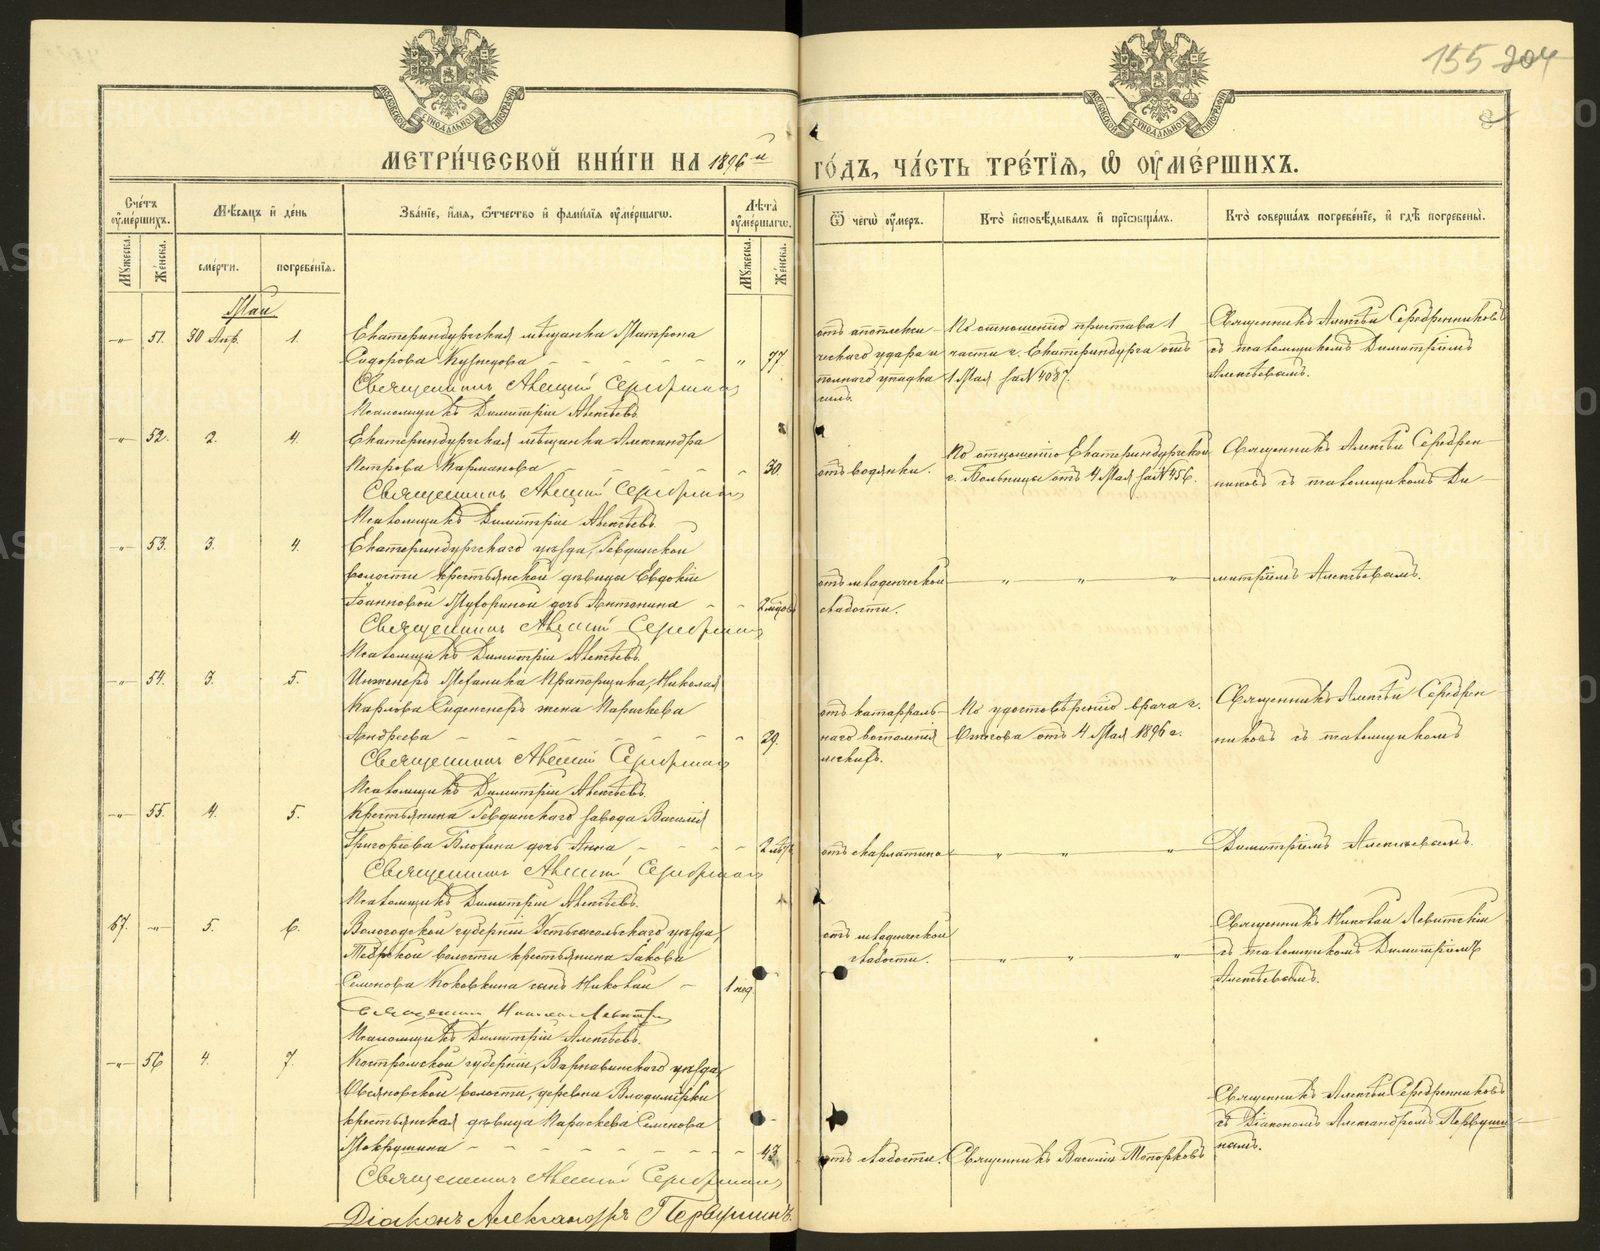 155 204
МЕТРИ́ЧЕСКОЙ КНИ́ГИ НА 1896й ГО́ДЪ, ЧА́СТЬ ТРЕ́ТІѦ, Ѡ҆ ОУ҆МЕ́РШИХЪ.
Сче́тъ оу҆ме́ршихъ.
Мѣ́сяцъ и҆ де́нь
Зва́ніе, и҆́мя, ѻ҆́тчество и҆ фами́лія оу҆ме́ршагѡ.
Лѣ́та оу҆ме́ршагѡ.
Ѿ чегѡ̀ оу҆́меръ.
Кто̀ и҆сповѣ́дывалъ и҆ прїѡбща́лъ.
Кто̀ соверша́лъ погребе́ніе, и҆ гдѣ̀ погребены̀.
Мꙋ́жеска. Же́нска.
сме́рти.
погребе́нія.
Мꙋ́жеска. Же́нска.
Май
-„- 51. 30 Апр. 1.
Екатеринбургская мѣщанка Матрона
Сидорова Кузнецова - - - - „ 77
Священникъ Алексій Серебренник
Псаломщикъ Димитрій Алексѣевъ.
отъ апоплекси-
ческаго удара и
полнаго упадка
силъ.
По отношенію пристава 1
части г. Екатеринбурга отъ
1 Мая за № 4087.
Священникъ Алексѣй Серебренниковъ
съ псаломщикомъ Димитріемъ
Алексѣевымъ.
-„- 52. 2. 4.
Екатеринбургская мѣщанка Александра
Петрова Карманова - - - - - 30.
Священникъ Алексій Серебренник
Псаломщикъ Димитрій Алексѣевъ.
отъ водянки.
По отношенію Екатеринбургской
г. Больницы отъ 4 Мая за № 456.
Священникъ Алексѣй Серебрен-
никовъ съ псаломщикомъ Ди-
-„- 53. 3. 4.
Екатеринбургскаго уѣзда, Ревдинской
волости крестьянской дѣвицы Евдокіи
Іоанновой дочь Антонина - -
Священникъ Алексій Серебренник
Псаломщикъ Димитрій Алексѣевъ.
отъ младенческой
слабости.
- „ „ „ -
митріемъ Алексѣевымъ.
-„- 54. 3. 5.
Инженеръ Механика Прапорщика, Николая
Карлова жена Параскева
Андреева - - - - - - 29.
Священникъ Алексій Серебренник
Псаломщикъ Димитрій Алексѣевъ.
отъ катарраль-
наго воспаленія
легкихъ.
По удостовѣренію врача г.
отъ 4 Мая 1896 г.
Священникъ Алексѣй Серебрен-
никовъ съ псаломщикомъ
-„- 55. 4. 5.
Крестьянина Ревдинскаго завода Василія
Григорьева дочь Анна - - - - 2 лѣтъ
Священникъ Алексій Серебренник
Псаломщикъ Димитрій Алексѣевъ.
отъ скарлатины
- „ „ „ -
Димитріемъ Алексѣевымъ.
67. -„- 5. 6.
Вологодской губерніи Устьсысольскаго уѣзда,
волости крестьянина Іакова
Семенова Коковкина сынъ Николай - 1 нед.
Священникъ Николай Левитскій
Псаломщикъ Димитрій Алексѣевъ.
отъ младенческой
слабости.
- „ „ „ -
Священникъ Николай Левитскій
съ псаломщикомъ Димитріемъ
Алексѣевымъ.
-„- 56 4. 7.
Костромской губерніи, Варнавинскаго уѣзда,
волости, деревни Владимірки
крестьянская дѣвица Параскева Семенова
Мокрушина - - - - - - - 43.
Священникъ Алексій Серебренник
Діаконъ Александръ Первушинъ.
отъ слабости.
Священникъ Василій Топорковъ
Священникъ Алексѣй Серебренниковъ
съ Діакономъ Александромъ Первуши-
нымъ.